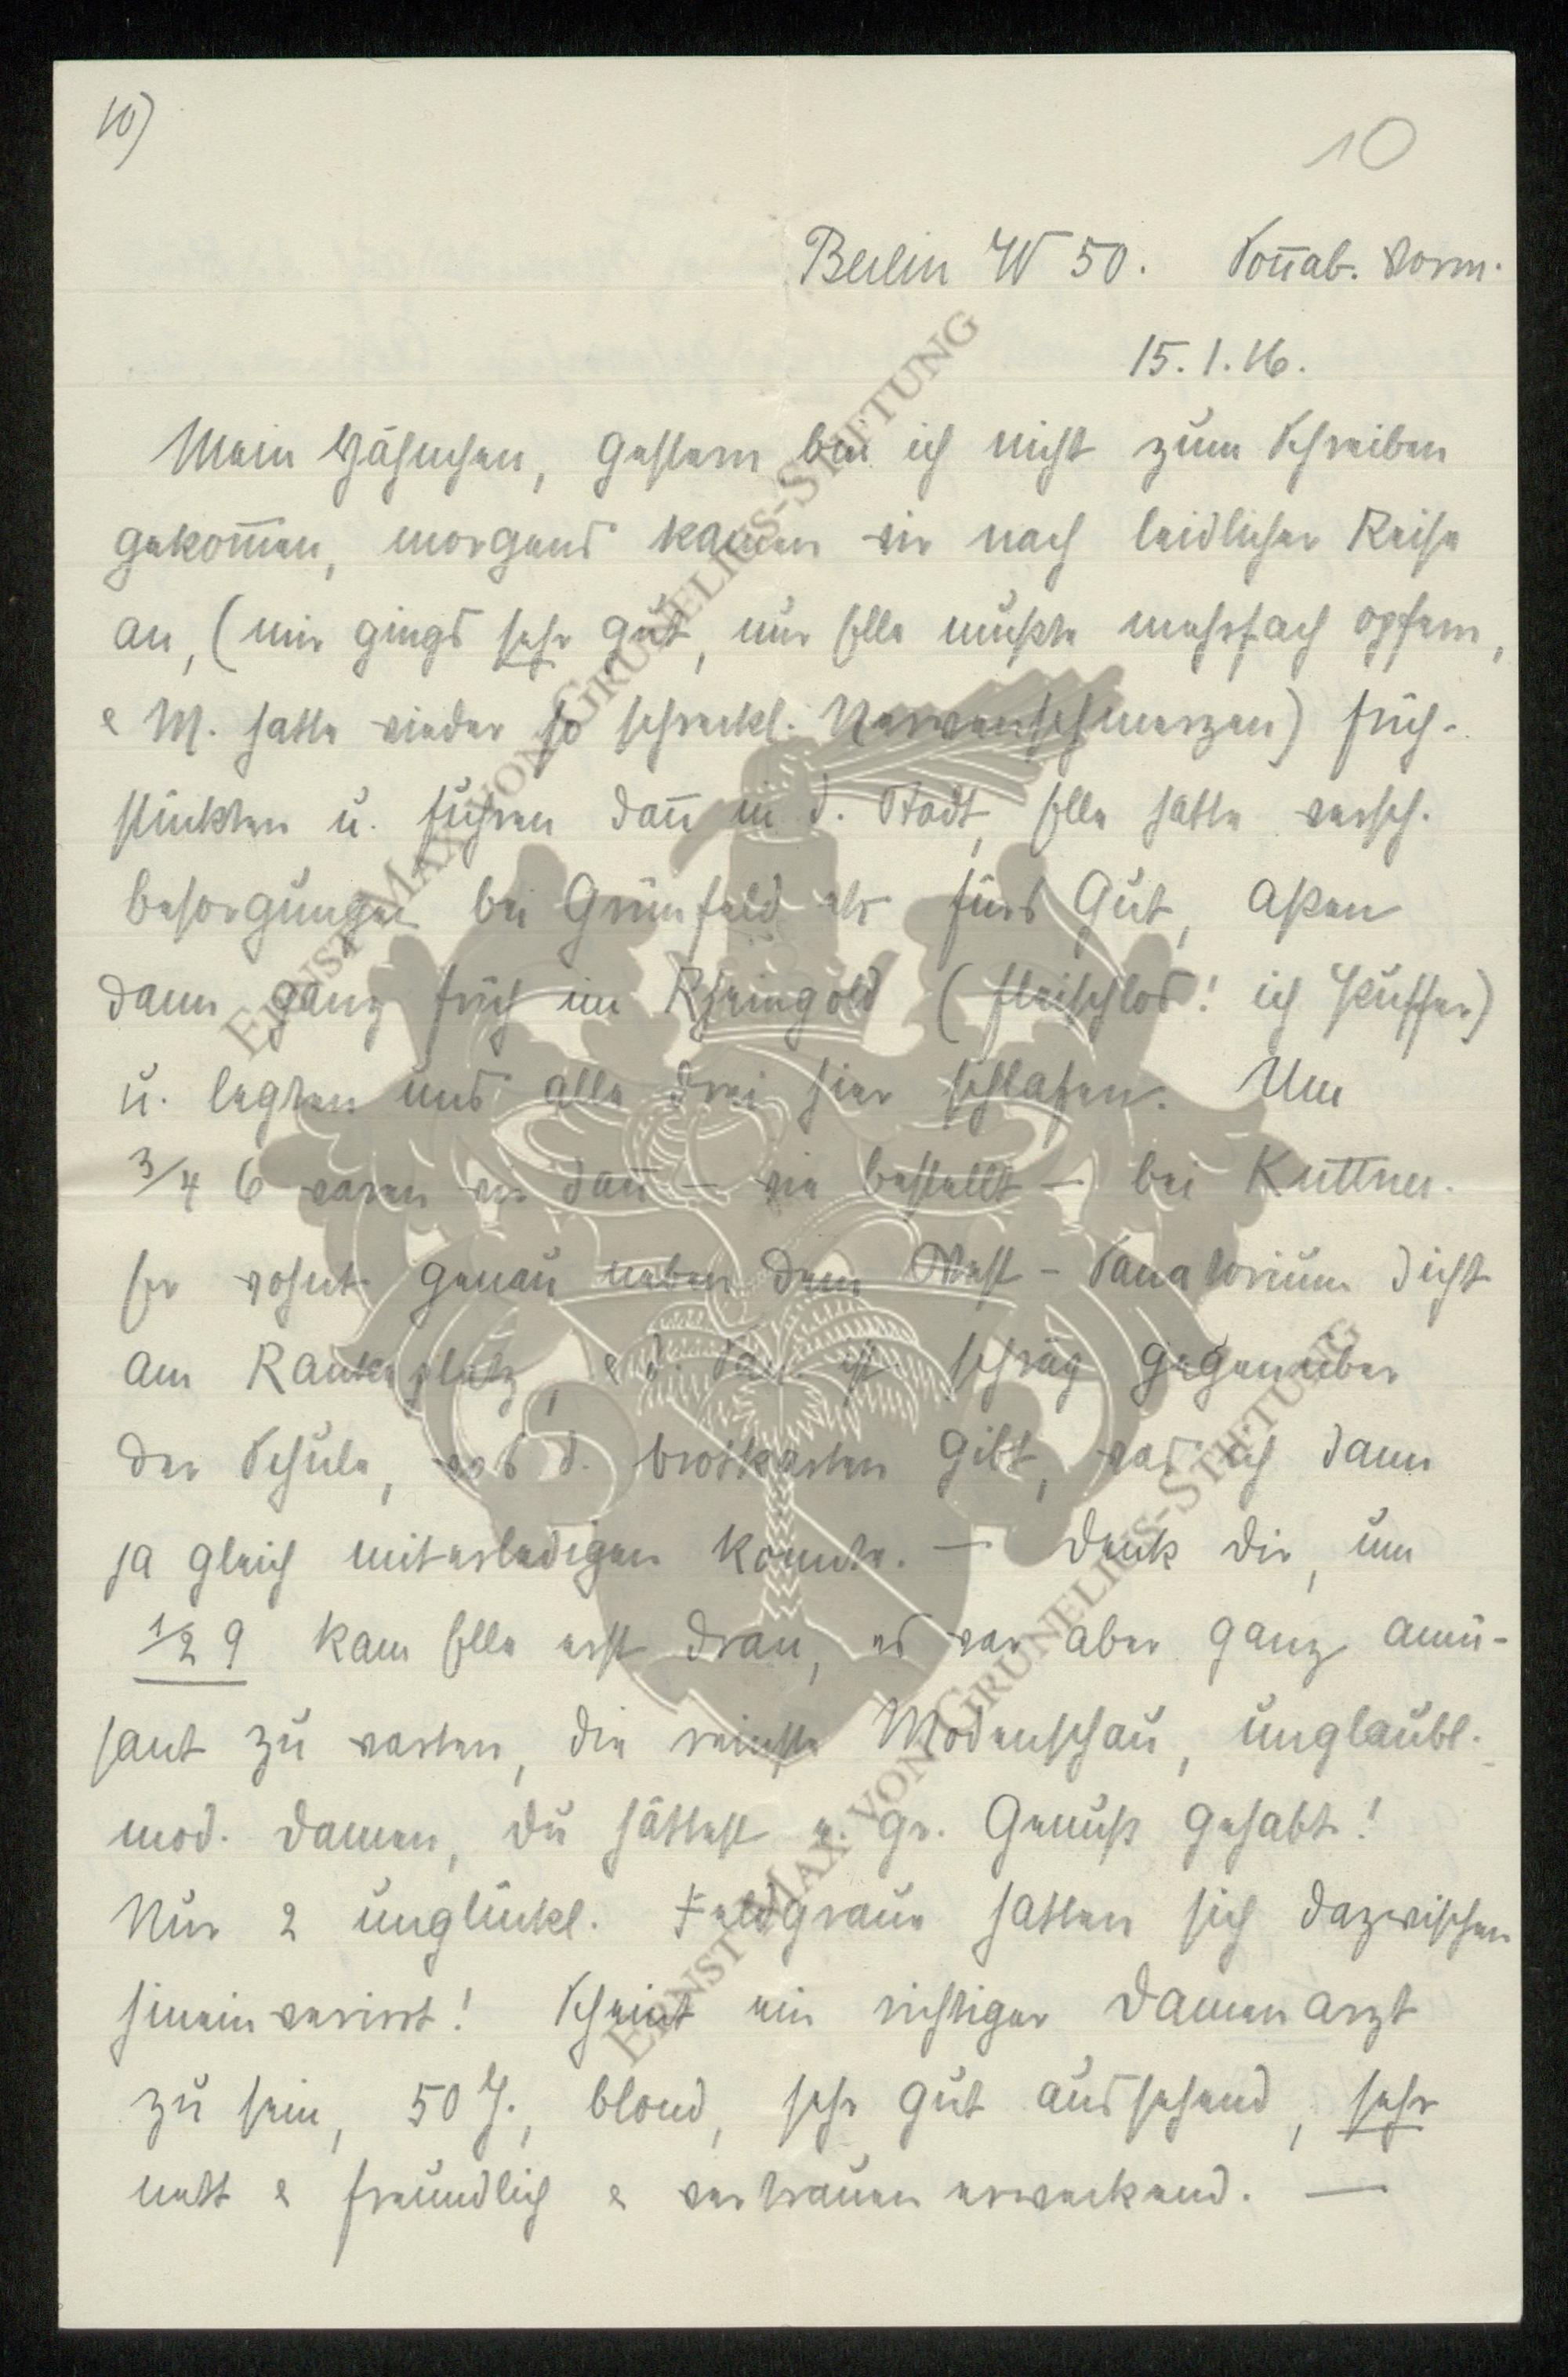 10)
10
Berlin W 50. Sonnab. Vorm.
15.1.16.
Mein Hähnchen, gestern bin ich nicht zum Schreiben
gekommen, morgens kamen wir nach leidlicher Reise
an, (mir gings sehr gut, nur Elle mußte mehrfach opfern,
& M. hatte wieder so schreckl. Nervenschmerzen) früh-
stückten u. fuhren dann in d. Stadt, Elle hatte versch.
Besorgungen bei Grünfeld etc fürs Gut, aßen
dann ganz früh im Rheingold (fleischlos! ich Puffer)
u. legten uns alle drei hier schlafen. Um
3/4 6 waren wir dann – wie bestellt – bei Kuttner.
Er wohnt genau neben dem West-Sanatorium dicht
am Rankeplatz, & d. San. ist schräg gegenüber
der Schule, wo's d. Brotkarten gibt, was ich dann
ja gleich miterledigen konnte. – Denk Dir, um
1/2 9 kam Elle erst dran, es war aber ganz amü-
sant zu warten, die reinste Modenschau, unglaubl.
mod. Damen, Du hättest e. gr. Genuß gehabt!
Nur 2 unglückl. Feldgraue hatten sich dazwischen
hinein verirrt! Scheint ein richtiger Damenarzt
zu sein, 50 J., blond, sehr gut aussehend, sehr
nett & freundlich & vertrauenerweckend. –
ERNST MAX VON GRUNELIUS-STIFTUNG
ERNST MAX VON GRUNELIUS-STIFTUNG